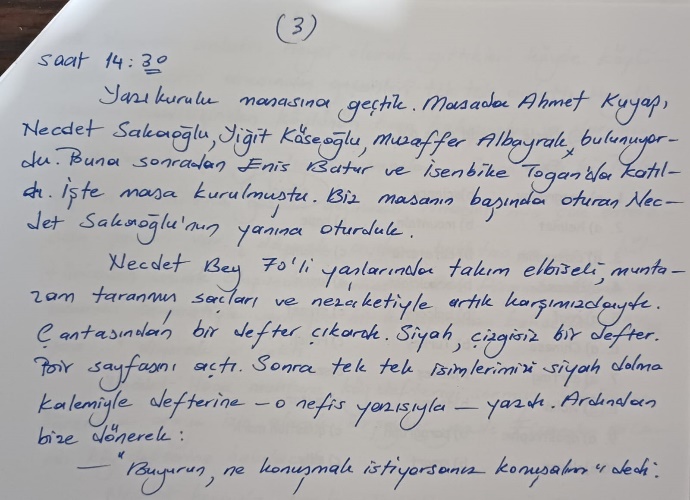 (3)
saat 14:30
Yazı kurulu masasına geçtik. Masada Ahmet Kuyaş,
Necdet Sakaoğlu, Yiğit Köseoğlu, Muzaffer Albayrak, bulunuyor-
du. Buna sonradan Enis Batur ve İsenbike Togan'da katıl-
dı. İşte masa kurulmuştu. Biz masanın başında oturan Nec-
det Sakaoğlu'nun yanına oturduk.
Necdet Bey 70'li yaşlarında takım elbiseli, munta-
zam taranmış saçları ve nezaketiyle artık karşımızdaydı.
Çantasından bir defter çıkardı. Siyah, çizgisiz bir defter.
Bir sayfasını açtı. Sonra tek tek isimlerimizi siyah dolma
kalemiyle defterine – o nefis yazısıyla – yazdı. Ardından
bize dönerek:
— "Buyurun, ne konuşmak istiyorsanız konuşalım" dedi.